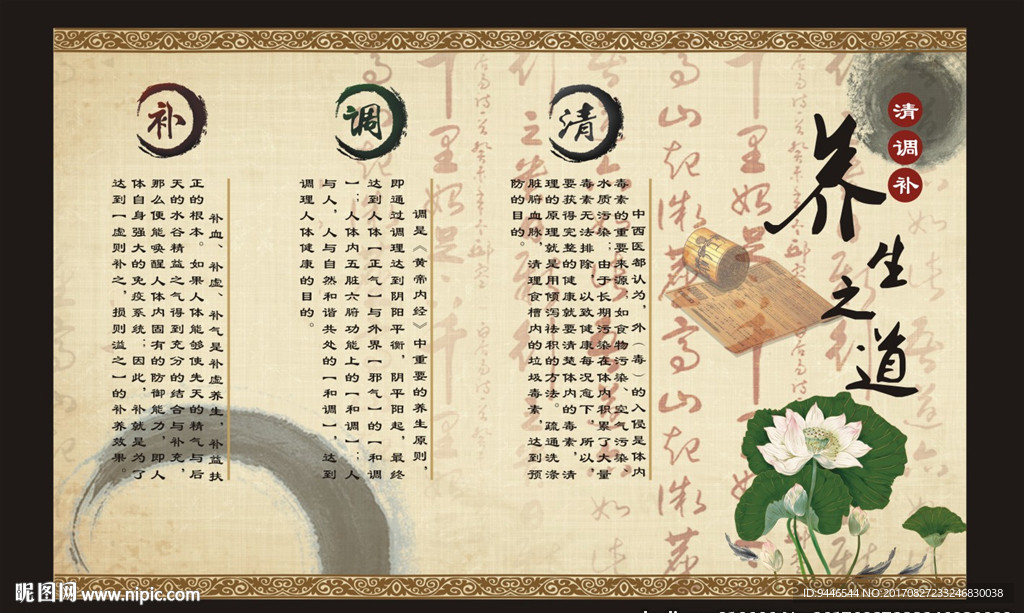 清
调
补
养生之道
清
中西医都认为，外（毒）的入侵是体内
毒素的重要来源，如食物污染、空气污染、
水质污染；由于长期污染在体内积累了大量
毒素无法排除，以致健康每况愈下。所以，
要获得完整的健康就要清楚体内的毒素，清
理的原理就是用倾泻祛积的方法。疏通洗涤
脏腑血脉，清理食槽内的垃圾毒素，达到预
防的目的。
调
调是《黄帝内经》中重要的养生原则，
即通过调理达到阴阳平衡，阴平阳起，最终
达到人体【正气】与外界【邪气】的【和调
】；人体内五脏六腑功能上的【和调】；人
与人，人与自然和谐共处的【和调】，达到
调理人体健康的目的。
补
补血、补虚、补气是补虚养生，补益扶
正的根本。如果人体能够使先天的精气与后
天的水谷精益之气得到充分的结合与补充，
那么便能唤醒人体内固有的防御能力，即人
体自身强大的免疫系统；因此，补就是为了
达到【虚则补之，损则溢之】的补养效果。
昵图网 www.nipic.com
ID:9446544 NO:20170827233246830038